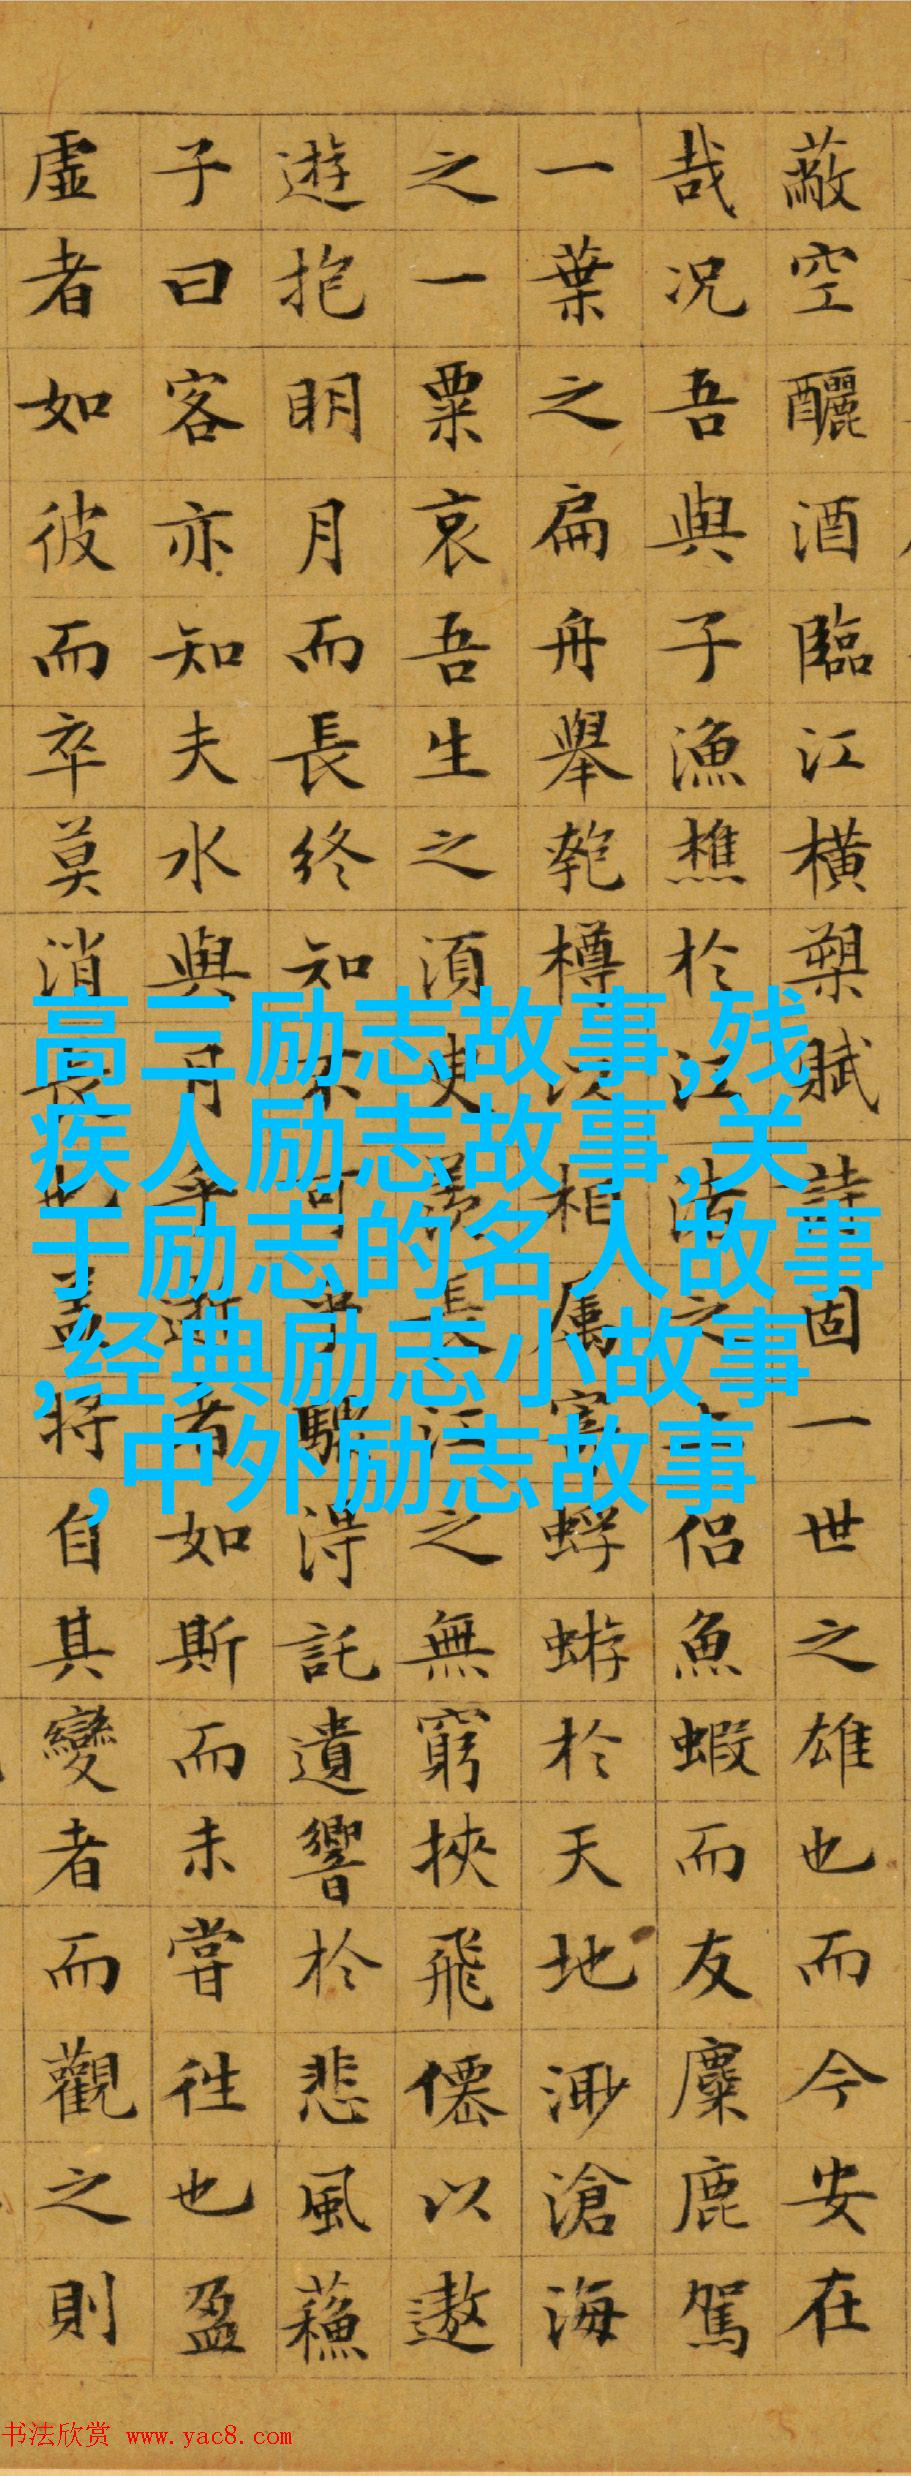 蔽空釃酒臨江橫槊賦詩固一世之雄也而今安在
哉况吾與子漁樵於江渚之上侣魚蝦而友麋鹿駕
一葉之扁舟舉匏樽以相属寄蜉蝣於天地渺滄海
之一粟哀吾生之須臾羡長江之無窮挾飛僊以遨
遊抱明月而長終知不可乎驟得託遺響於悲風蘓
子曰客亦知夫水與月乎逝者如斯而未嘗往也盈
虛者如彼而卒莫消長也盖將自其變者而觀之則
高三励志故事,残
疾人励志故事,关
于励志的名人故事
,经典励志小故事
,中外励志故事
书法欣赏 www.yac8.com